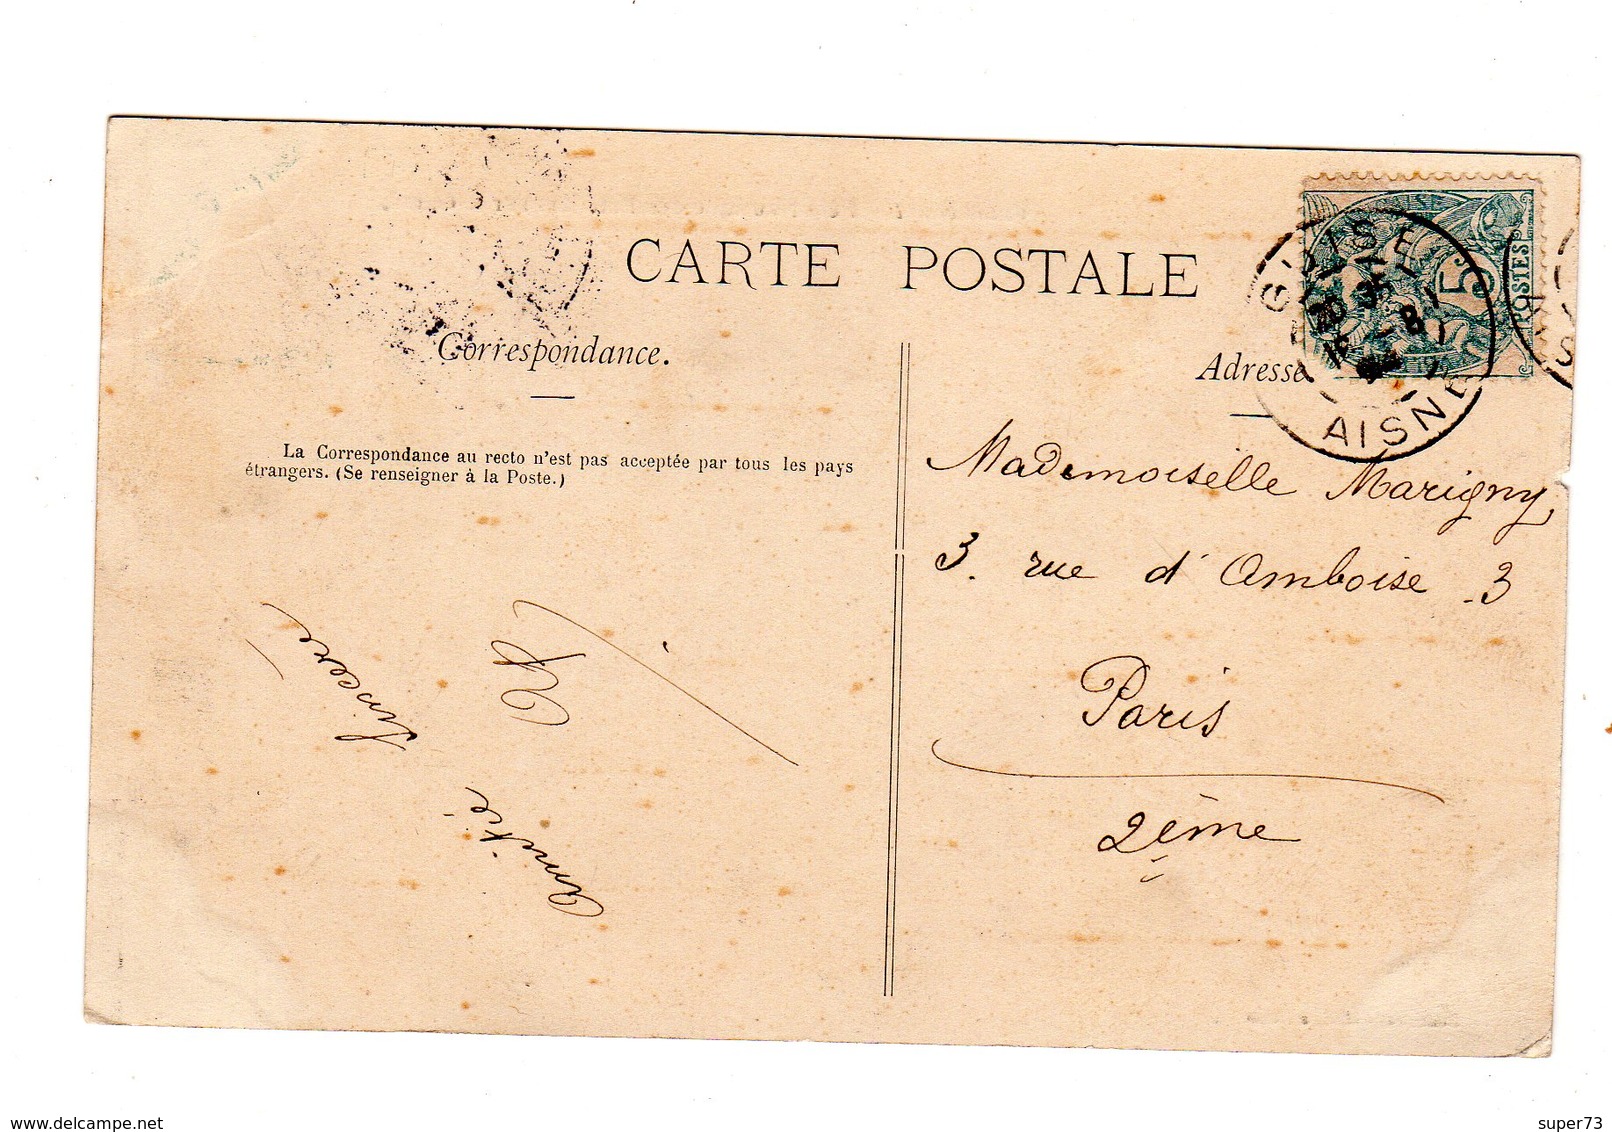 CARTE POSTALE
Correspondance.
Adresse
La Correspondance au recto n'est pas acceptée par tous les pays
étrangers. (Se renseigner à la Poste.)
POSTES
5
AISNE
Mademoiselle Marigny
3. rue d'Amboise _3
Paris
2ème
Amitié
sincère
www.delcampe.net
super73